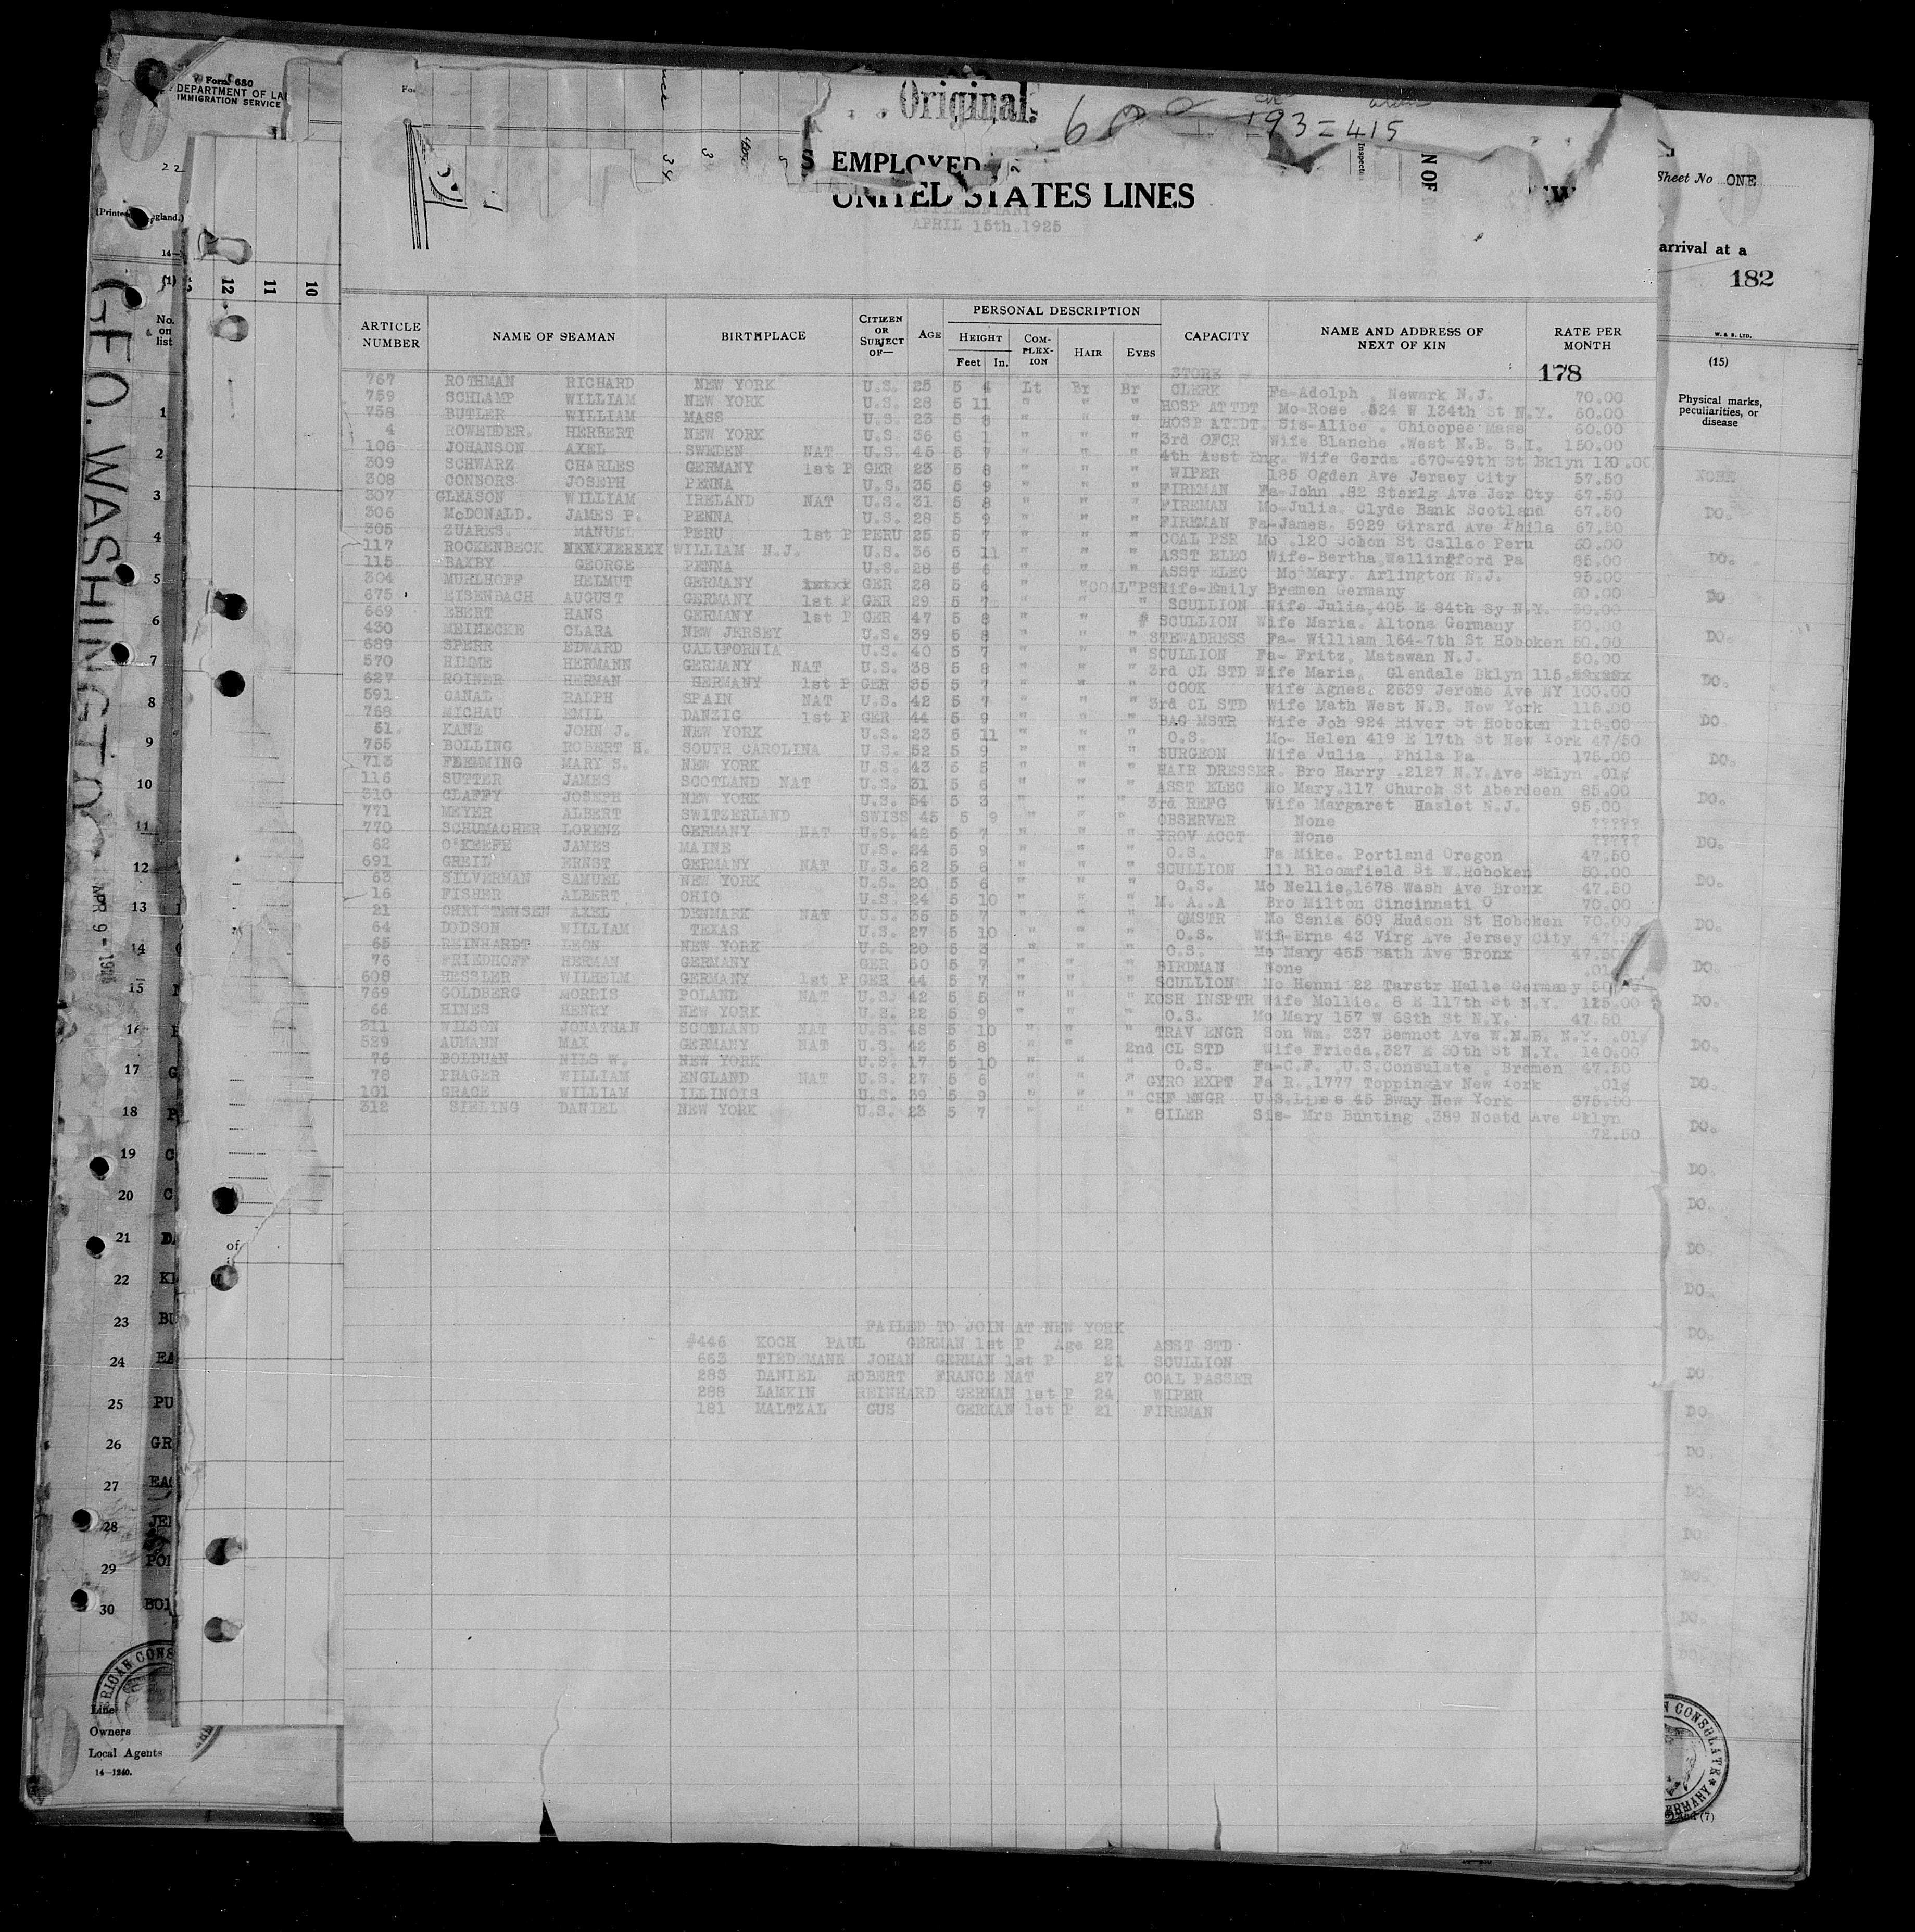 Form 680
DEPARTMENT OF LA
IMMIGRATION SERVICE
Original
600
193 = 415
S EMPLOYED
UNITED STATES LINES
SUPPLEMENTARY
APRIL 15th.1925
Sheet No ONE
arrival at a
182
W. & S. LTD.
(15)
Physical marks, peculiarities, or disease
GEO. WASHINGTON
APR 9 - 19
12 11 10
ARTICLE NUMBER NAME OF SEAMAN BIRTHPLACE CITIZEN OR SUBJECT OF— AGE PERSONAL DESCRIPTION CAPACITY NAME AND ADDRESS OF NEXT OF KIN RATE PER MONTH
HEIGHT Feet In. COM-PLEX-ION HAIR EYES
178
STORE
767 ROTHMAN RICHARD NEW YORK U.S. 25 5 4 Lt Br Br CLERK Fa-Adolph , Newark N.J. 70.00
759 SCHLAMP WILLIAM NEW YORK U.S. 28 5 11 " " " HOSP ATTDT Mo-Rose .524 W 134th St N.Y. 60.00
758 BUTLER WILLIAM MASS U.S. 23 5 8 " " " HOSP ATTDT. Sis-Alice . Chicopee Mass 60.00
4 ROWEDDER. HERBERT NEW YORK U.S 36 6 1 " " " 3rd OFCR Wife Blanche .West N.B. S.I. 150.00
106 JOHANSON AXEL SWEDEN NAT U.S. 45 5 7 " " " 4th Asst Eng. Wife Gerda .670-49th St Bklyn 130.00
309 SCHWARZ CHARLES GERMANY 1st P GER 23 5 8 " " " WIPER 185 Ogden Ave Jersey City 57.50
308 CONNORS JOSEPH PENNA U.S. 35 5 9 " " " FIREMAN Fa-John .82 Sterlg Ave Jer Cty 67.50
307 GLEASON WILLIAM IRELAND NAT U.S. 31 5 8 " " " FIREMAN Mo-Julia. Clyde Bank Scotland 67.50
306 McDONALD. JAMES P. PENNA U.S. 28 5 9 " " " FIREMAN Fa-James. 5929 Girard Ave Phila 67.50
305 ZUARES. MANUEL PERU 1st P PERU 25 5 7 " " " COAL PSR Mo .120 Johon St Callao Peru 60.00
117 ROCKENBECK WILLIAM N.J. U.S. 36 5 11 " " " ASST ELEC Wife-Bertha Wallingford Pa 85.00
115 BAXBY GEORGE PENNA U.S. 28 5 6 " " " ASST ELEC Mo Mary. Arlington N.J. 95.00
304 MURLHOFF HELMUT GERMANY xxxxx GER 28 5 6 " " COAL"PS Wife-Emily Bremen Germany 60.00
675 EISENBACH AUGUST GERMANY 1st P GER 29 5 7 " " " SCULLION Wife Julia,405 E 84th Sy N.Y. 50.00
669 EBERT HANS GERMANY 1st P GER 47 5 8 " " # SCULLION Wife Maria. Altona Germany 50.00
430 MEINECKE CLARA NEW JERSEY U.S. 39 5 8 " " " STEWADRESS Fa- William 164-7th St Hoboken 50.00
589 SPERR EDWARD CALIFORNIA U.S. 40 5 7 " " " SCULLION Fa- Fritz, Matawan N.J. 50.00
570 HIMME HERMANN GERMANY NAT U.S. 38 5 8 " " " 3rd CL STD Wife Maria, Glendale Bklyn 115.
627 ROINER HERMAN GERMANY 1st P GER 35 5 7 " " " COOK Wife Agnes. 2639 Jerome Ave NY 100.00
591 CANAL RALPH SPAIN NAT U.S. 42 5 7 " " " 3rd CL STD Wife Math West N.B. New York 115.00
768 MICHAU EMIL DANZIG 1st P GER 44 5 9 " " " BAG MSTR Wife Joh 924 River St Hoboken 115.00
51. KANE JOHN J. NEW YORK U.S. 23 5 11 " " " O.S. Mo- Helen 419 E 17th St New York 47/50
755 BOLLING ROBERT H. SOUTH CAROLINA U.S. 52 5 9 " " " SURGEON Wife Julia , Phila Pa 175.00
713 FLEMMING MARY S. NEW YORK U.S. 43 5 5 " " " HAIR DRESSER. Bro Harry .2127 N.Y.Ave Bklyn .01¢
116 SUTTER JAMES SCOTLAND NAT U.S. 31 5 6 " " " ASST ELEC Mo Mary.117 Church St Aberdeen 85.00
310 CLAFFY JOSEPH NEW YORK U.S. 54 5 3 " " " 3rd REFG Wife Margaret Hazlet N.J. 95.00
771 MEYER ALBERT SWITZERLAND SWISS 45 5 9 " " " OBSERVER None ?????
770 SCHUMACHER LORENZ GERMANY NAT U.S. 42 5 7 " " " PROV ACCT None ?????
62 O'KEEFE JAMES MAINE U.S. 24 5 9 " " " O.S. Fa Mike. Portland Oregon 47.50
691 GREIL ERNST GERMANY NAT U.S. 62 5 6 " " " SCULLION 111 Bloomfield St W.Hoboken 50.00
63 SILVERMAN SAMUEL NEW YORK U.S. 20 5 6 " " " O.S. Mo Nellie,1678 Wash Ave Bronx 47.50
16 FISHER ALBERT OHIO U.S. 24 5 10 " " " M. A..A Bro Milton Cincinnati O 70.00
21 CHRISTENSEN AXEL DENMARK NAT U.S. 35 5 7 " " " QMSTR Mo Senia 609 Hudson St Hoboken 70.00
64 DODSON WILLIAM TEXAS U.S. 27 5 10 " " " O.S. Wif-Erna 43 Virg Ave Jersey City 47.50
65 REINHARDT LEON NEW YORK U.S. 20 5 3 " " " O.S. Mo Mary 465 Bath Ave Bronx 47.50
76 FRIEDHOFF HERMAN GERMANY GER 50 5 7 " " " BIRDMAN None .01
608 HESSLER WILHELM GERMANY 1st P GER 44 5 7 " " " SCULLION Mo Henni 22 Tarstr Halle Germany 50
769 GOLDBERG MORRIS POLAND NAT U.S. 42 5 5 " " " KOSH INSPTR Wife Mollie. 8 E 117th St N.Y. 125.00
66 HINES HENRY NEW YORK U.S. 22 5 9 " " " O.S. Mo Mary 157 W 68th St N.Y. 47.50
311 WILSON JONATHAN SCOTLAND NAT U.S. 48 5 10 " " " TRAV ENGR Son Wm. 337 Bemnot Ave W.N.B. N.Y. .01¢
529 AUMANN MAX GERMANY NAT U.S. 42 5 8 " " 2nd CL STD Wife Frieda,327 E 30th St N.Y. 140.00
76 BOLDUAN NILS W. NEW YORK U.S. 17 5 10 " " " O.S. Fa-C.F. .U.S.Consulate . Bremen 47.50
78 PRAGER WILLIAM ENGLAND NAT U.S. 27 5 6 " " " GYRO EXPT Fa R..1777 ToppingAv New York .01¢
101 GRACE WILLIAM ILLINOIS U.S. 39 5 9 " " " CHF ENGR U.S.Lines 45 Bway New York 375.00
312 SIELING DANIEL NEW YORK U.S. 23 5 7 " " " OILER Sis- Mrs Bunting .389 Nostd Ave Bklyn
72.50
FAILED TO JOIN AT NEW YORK
#446 KOCH PAUL GERMAN 1st P Age 22 ASST STD
663 TIEDEMANN JOHAN GERMAN 1st P 21 SCULLION
283 DANIEL ROBERT FRANCE NAT 27 COAL PASSER
288 LAMKIN REINHARD GERMAN 1st P 24 WIPER
181 MALTZAL GUS GERMAN 1st P 21 FIREMAN
Line
Owners
Local Agents
14—1240.